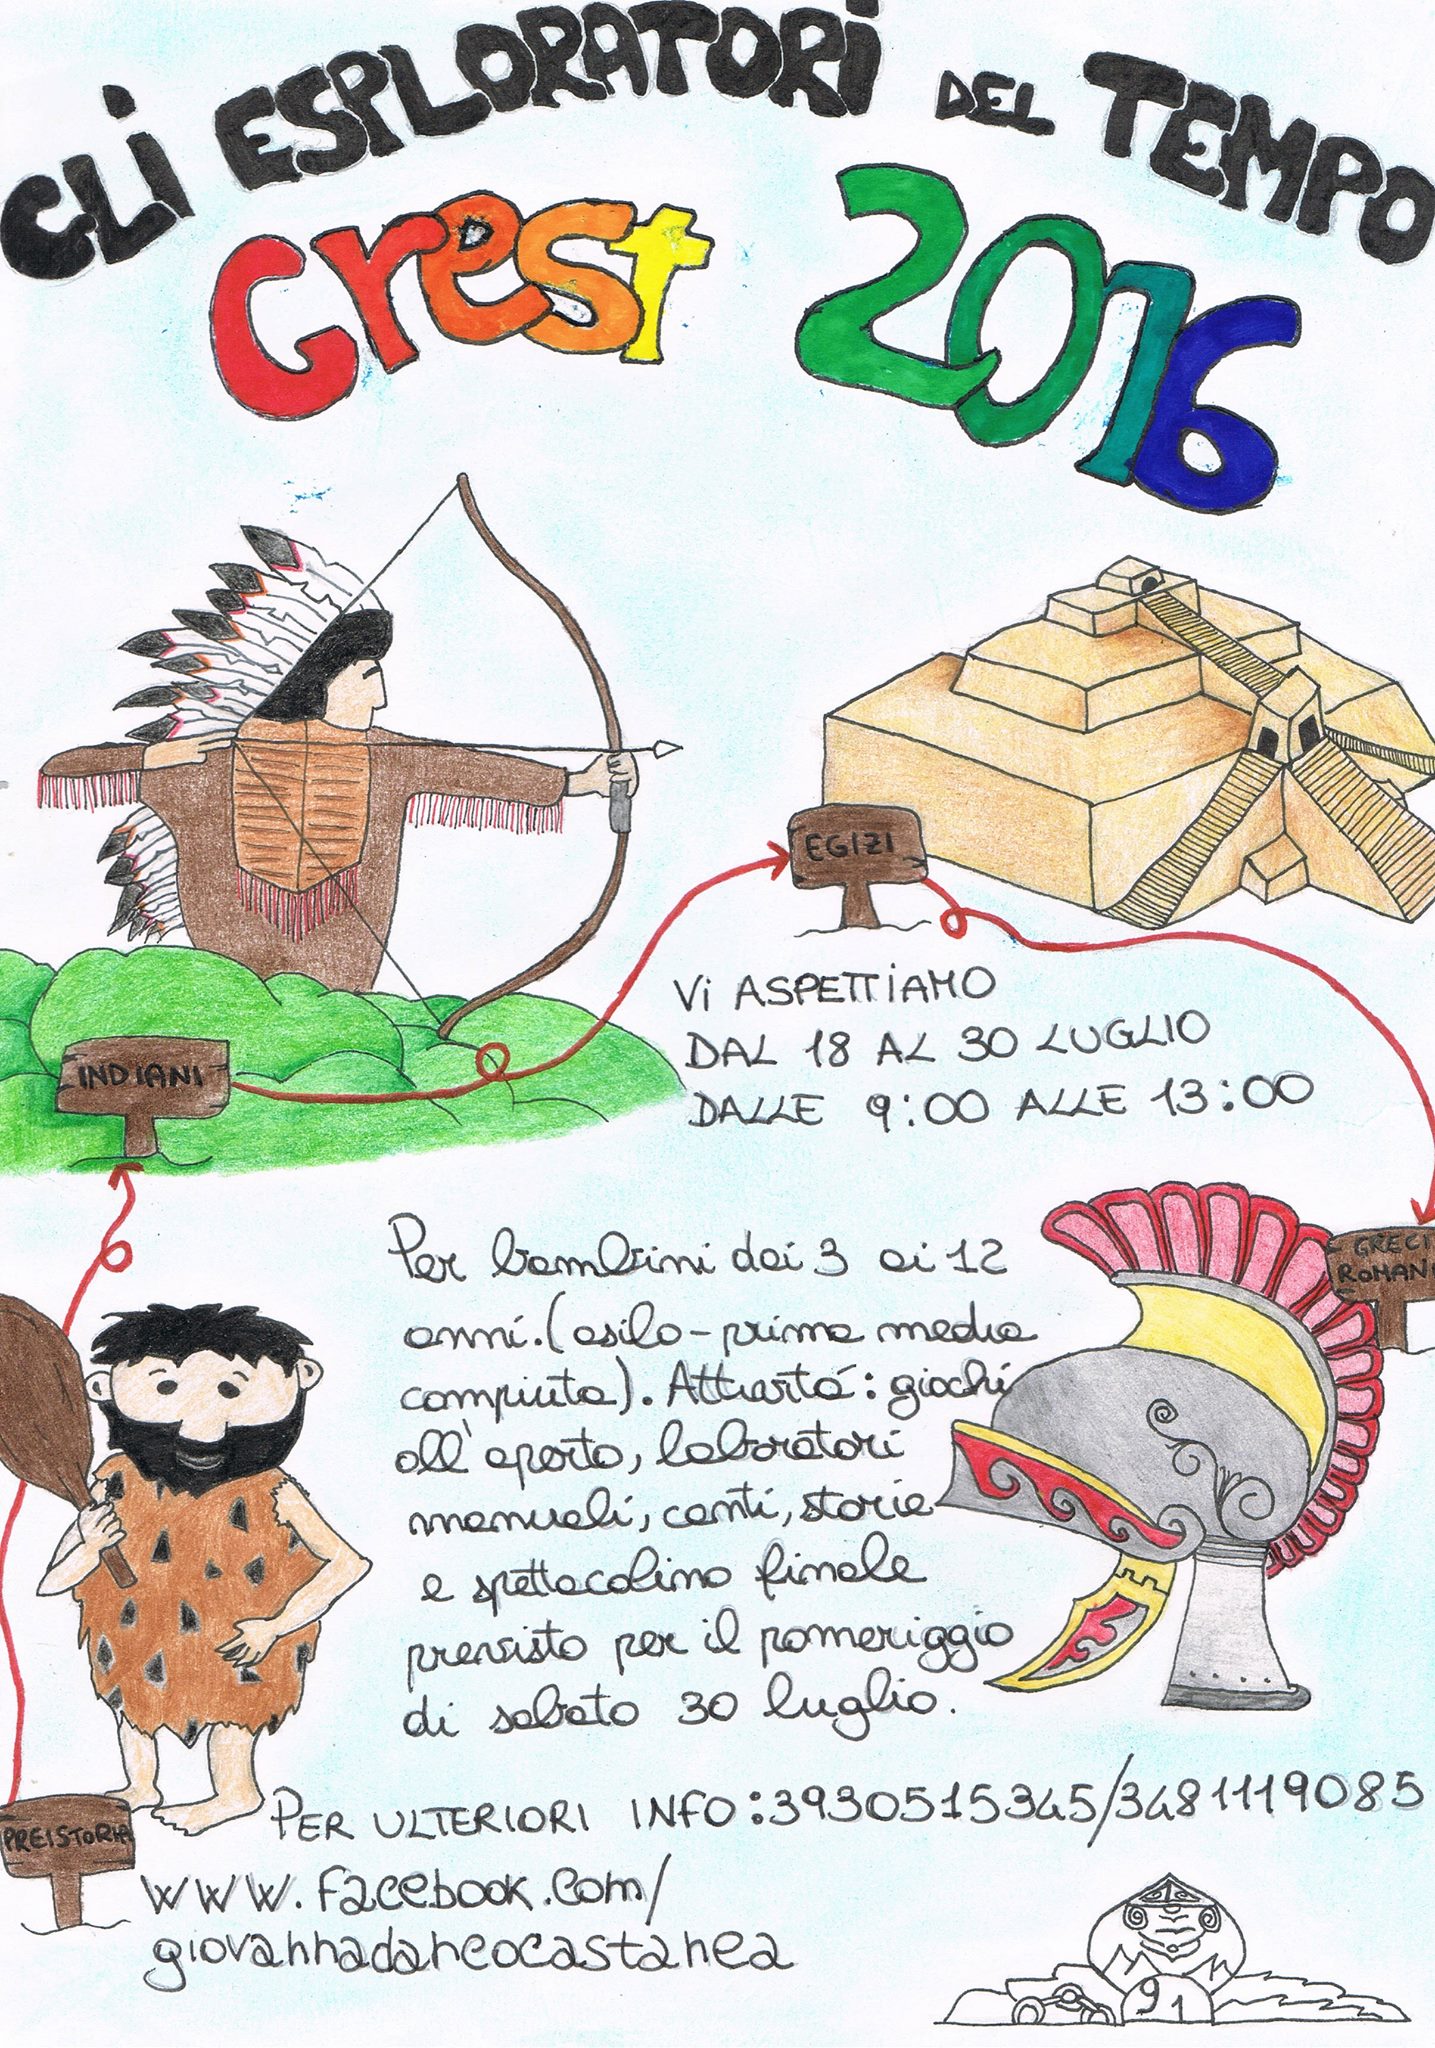 GLI ESPLORATORI DEL TEMPO
Grest 2016
EGIZI
INDIANI
Vi ASPETTIAMO
DAL 18 AL 30 LUGLIO
DALLE 9:00 ALLE 13:00
GRECI
ROMANI
Per bambini dai 3 ai 12
anni.(asilo-prima media
compiuta). Attività: giochi
all'aperto, laboratori
manuali, canti, storie
e spettacolino finale
previsto per il pomeriggio
di sabato 30 luglio.
PER ULTERIORI INFO:3930515345/3481119085
PREISTORIA
www.facebook.com/
giovannadarcocastanea
91